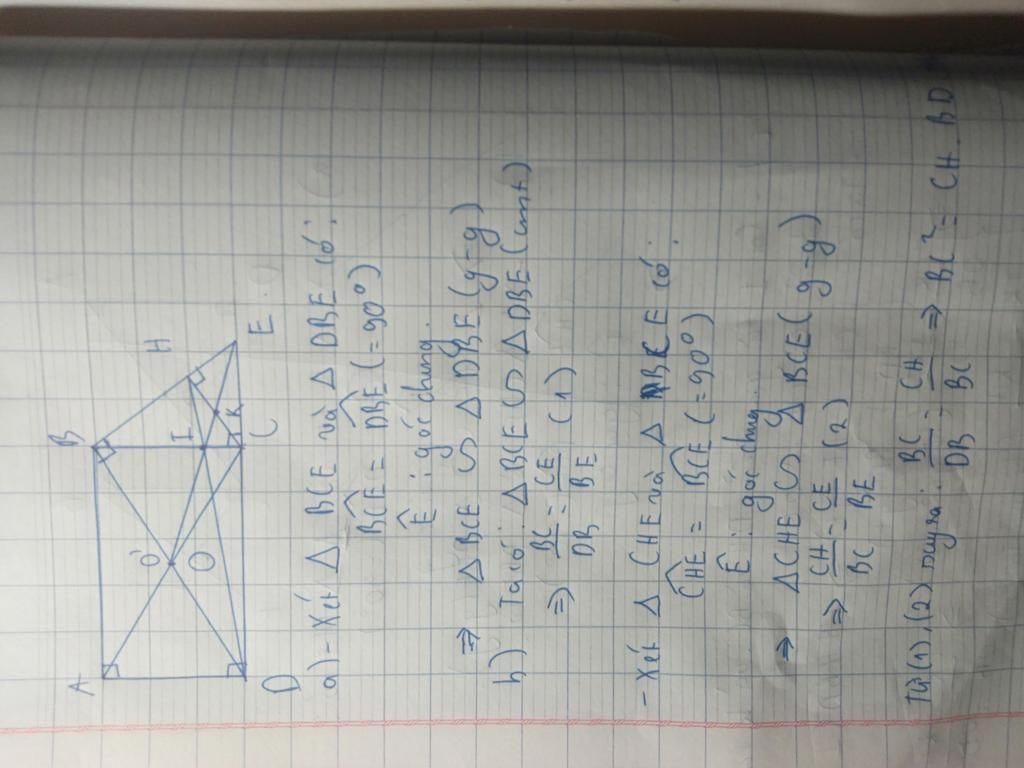 A B H
O' I
O K
D C E
a) - Xét Δ BCE và Δ DBE có:
BĈE = DB̂E (= 90°)
Ê : góc chung.
⇒ Δ BCE ∽ Δ DBE (g-g)
b) Ta có: Δ BCE ∽ Δ DBE (cmt)
⇒ BC/DB = CE/BE (1)
- Xét Δ CHE và Δ BCE có:
CĤE = BĈE (= 90°)
Ê : góc chung.
⇒ ΔCHE ∽ Δ BCE (g-g)
⇒ CH/BC = CE/BE (2)
Từ (1), (2) suy ra: BC/DB = CH/BC ⇒ BC² = CH . BD